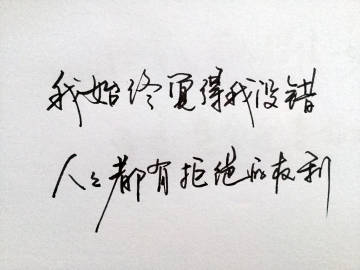 我始终觉得我没错
人人都有拒绝的权利